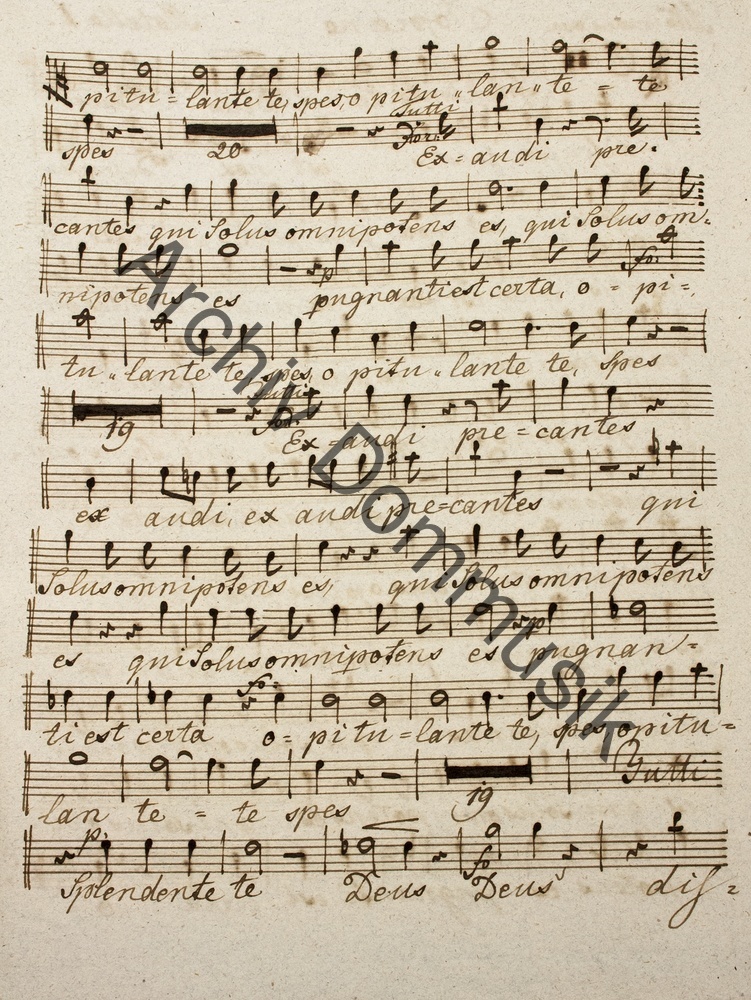 pitu = lante te, spes, o pitu „ lan „ te = te
Tutti
spes 20 For: Ex = audi pre.
cantes qui Solus omnipotens es, qui Solus om-
nipotens es p pugnanti est certa, o = pi =
fo:
tu „ lante te, spes, o pitu „ lante te, spes
Tutti
19 for: Ex = audi pre = cantes
ex audi, ex audi pre = cantes qui
Solus omnipotens es, qui Solus omnipotens
es qui Solus omnipotens es p pugnan =
fo:
ti est certa o = pi tu = lante te, spes, o pitu =
Tutti
lan te = te spes 19
p:
fo
Splendente te Deus Deus dis =
Archiv Dommusik